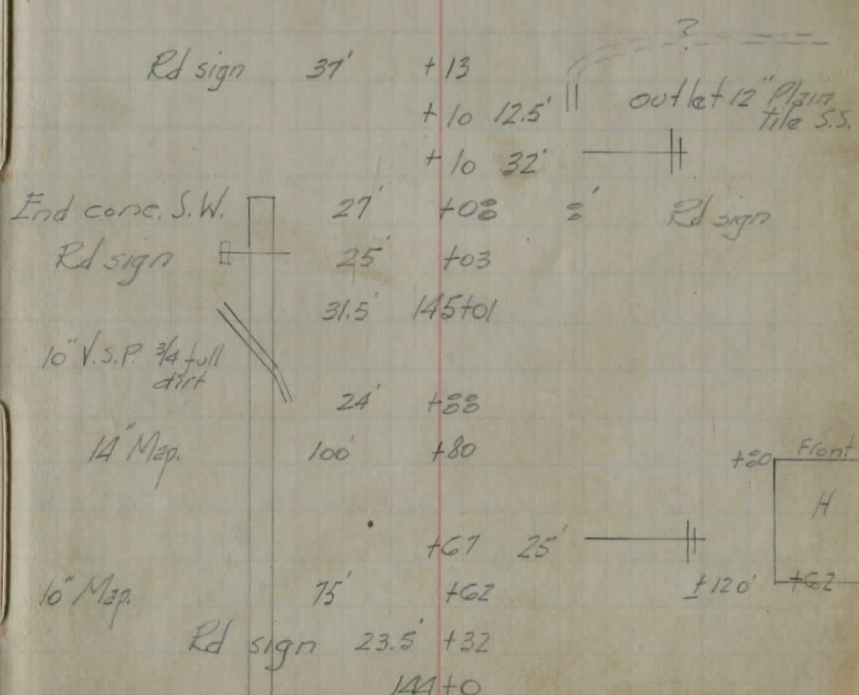 ?
Rd sign 37' +13
+10 12.5' outlet 12" Plain
tile S.S.
+10 32'
End conc. S.W. 27' +08 8' Rd sign
Rd sign 25' +03
31.5' 145+01
10" V.S.P. 3/4 full
dirt
24' +88
14" Map. 100' +80 +80 Front
H
+67 25'
10" Map. 75' +62 ±120' +62
Rd sign 23.5' +32
144+0